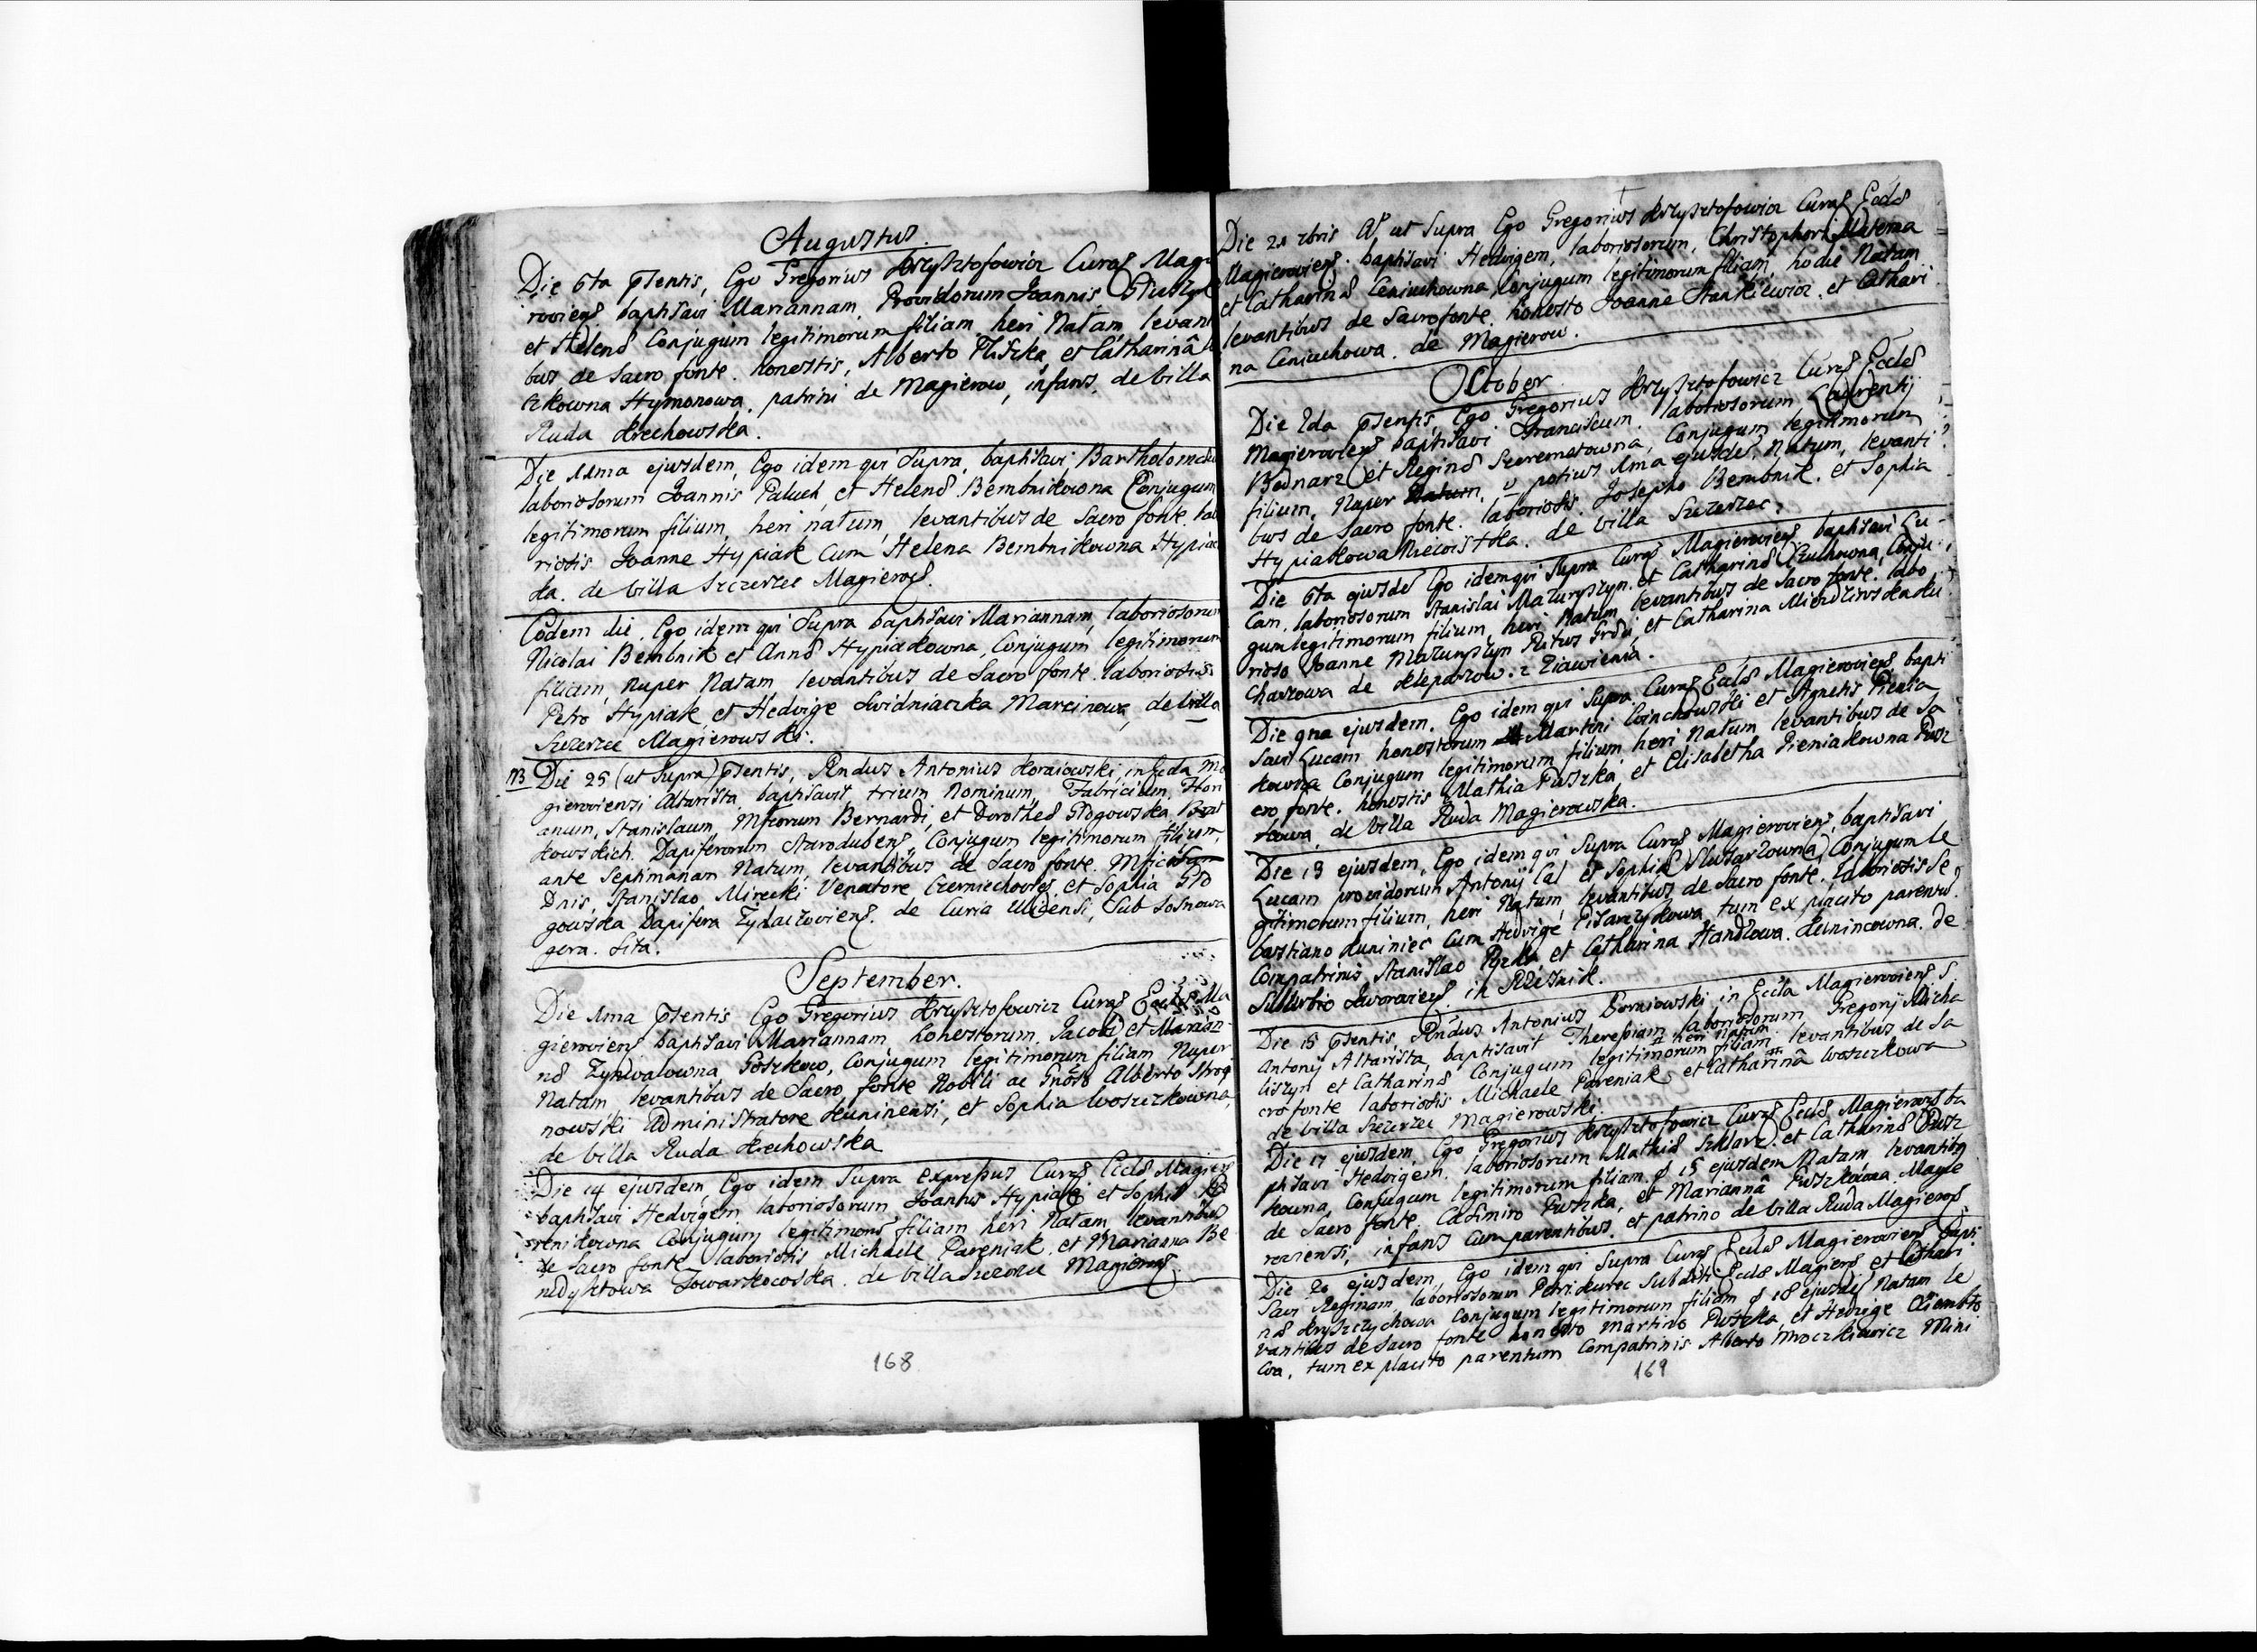 Augustus.
Die 6ta pſentis, Ego Gregorius Krzysztofowicz Curaς Magi
roviensς baptisavi Mariannam, Providorum Joannis
et Helenæ Conjugum legitimorum filiam, heri Natam, levan
bus de Sacro fonte. honestis, Alberto Pliszka et Catharinâ
czkowna Hymonowa. patrini de Magierow, infans, de billa
Ruda Krechowska.
Die 11ma ejusdem, Ego idem qui Supra, baptisavi Bartholomæu
laboriosorum Joannis Paluch, et Helenæ Bembnikowna Conjugum
legitimorum filium, heri natum, levantibus de Sacro fonte. labo
riosis Joanne Hypiak Cum Helena Bembnikowna Hypiac
ka. de billa Szczerzec Magieroς.
Eodem die, Ego idem qui Supra baptisavi Mariannam, laboriosorum
Nicolai Bembnik et Annæ Hypiakowna, Conjugum legitimorum
filiam, Nuper Natam levantibus de Sacro fonte. laboriosis
Petro Hypiak et Hedvige Swidniaczka Marcinowa, de billa
Szczerzec Magierowski.
Die 25 (ut Supra) pſentis, Rndus Antonius Koraiowski, in Eccla Ma
gieroviensi Altarista, baptisavit trium Nominum, Fabricium, Flori
anum, Stanislaum, Mficorum Bernardi, et Dorotheæ Głogowska
kowskich. Dapiferorum Starodubenς, Conjugum legitimorum filium,
ante Septimanam Natum, levantibus de Sacro fonte. Mficis
Dnis, Stanislao Mirecki Venatore Czerniechovieς, et Sophia Gło
gowska Dapifera Zydaczovienς. de Curia Ulicensi, Sub Sosnowa
gora. sita.
September.
Die 1ma pſentis Ego Gregorius Krzysztofowicz Curaς Ecclæ Ma
gierovienς baptisavi Mariannam, honestorum, Jacobi et Marian
næ Zynwalowna Goszkow, Conjugum legitimorum filiam Nuper
Natam, levantibus de Sacro fonte Nobili ac Gnoso Alberto
nowski Administratore Kuninensi, et Sophia Woszczkowna,
de billa Ruda Krechowska
Die 14 ejusdem, Ego idem Supra expressus Curaς Ecclæ Magierς
baptisavi Hedvigem, laboriosorum Joannis Hypiak et Sophiæ
renikowna Conjugum legitimorς filiam heri Natam, levantibus
de Sacro fonte laboriosis Michaele Pareniak, et Marianna Be
nedyktowa Towarkowska. de billa Szczerzec Magierς.
168
Die 21 7bris Aο ut Supra Ego Gregorius Krzysztofowicz Curaς Ecclæ
Magierovienς. baptisavi Hedvigem, laboriosorum, Christophori Materna
et Catharinæ Ceniuchowna, Conjugum legitimorum filiam, hodie Natam
levantibus de Sacro fonte. honesto Joanne Stankiewicz. et Cathari
na Ceniuchowa. de Magierow.
October.
Die 2da pſentis, Ego Gregorius Krzysztofowicz Curaς Ecclæ
Magierovieς baptisavi Franciscum. laboriosorum Laurentij
Bednarz et Reginæ Szeremetowna, Conjugum legitimorum
filium, Nuper Natum, potius 1ma ejusdeς, Natum, levanti
bus de Sacro fonte. laboriosis Josepho Bembnik. et Sophia
Hypiakowa de billa Szczerzec.
Die 6ta ejusdς Ego idem qui Supra Curaς Magierovieς. baptisavi Lu-
cam, laboriosorum Stanislai Mazuryszyn, et Catharinæ Conju-
gum legitimorum filium, heri Natum, levantibus de Sacro fonte. labo
rioso Joanne Mazuryszyn et Catharina Ku
charzowa de Kleparzow. z Ziawienia.
Die 9na ejusdem, Ego idem qui Supra. Curaς Ecclæ Magierovieς bapti
savi Lucam honestorum Martini et Agnetis Pienia
kowna Conjugum legitimorum filium, heri Natum levantibus de Sa
cro fonte. honestis Mathia Puszka, et Elisabetha Pieniakowna Pusz
kowa, de billa Ruda Magierowska.
Die 13 ejusdem, Ego idem qui Supra Curaς Magierovienς. baptisavi
Lucam providorum Antonij Cal et Sophiæ Slusarzowna, Conjugum le
gitimorum filium, heri Natum, levantibus de Sacro fonte. laboriosis Se
bastiano Kuniniec Cum Hedvige Pisarczykowa, tum ex placito parentuς.
Compatrinis Stanislao et Catharina Handlowa. Kunincowna. de
Suburbio Javorovieς in Przesnik.
Die 15 pſentis, Rndus Antonius Korniowski in Eccla Magieroviensς S.
Antonij Altarista, baptisavit Theresiam laboriosorum Gregorij Micha
liszyn et Catharinæ Conjugum legitimorum filiam heri Natam levantibus de Sa
cro fonte laboriosis Michaele Pareniak et Catharinâ Woszczkowa
de billa Szczerzec Magierowski.
Die 17 ejusdem, Ego Gregorius Krzysztofowicz Curaς Ecclæ Magieroς ba
ptisavi Hedvigem, laboriosorum Mathiæ Szklarz et Catharinæ Pusz
kowna, Conjugum legitimorum filiam 15 ejusdem Natam, levantibς
de Sacro fonte. Casimiro Puszka, et Mariannâ Puszkowa. Magie
roviensi, infans cum parentibus, et patrino de billa Ruda Magieroς.
Die 20 ejusdem, Ego idem qui Supra Curaς Ecclæ Magierovienς bapti
savi Reginam, laboriosorum Petri Kurec Subditi Ecclæ Magierς et Cathari
næ Krzyszczychowa Conjugum legitimorum filiam 18 ejusdeς Natam le
vantibus de Sacro fonte honesto Martino Puszka, et Hedvige
wa, tum ex placito parentum Compatrinis Alberto Mroczkiewicz Mini
169